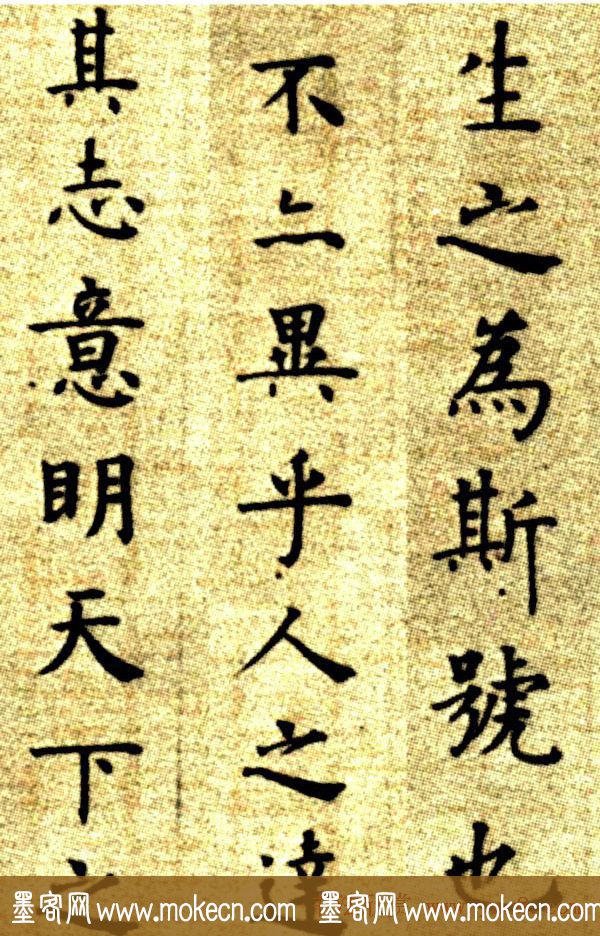 生之為斯號也
不異乎人之達
其志意明天下
墨客网 www.mokecn.com 墨客网 www.mokecn.com